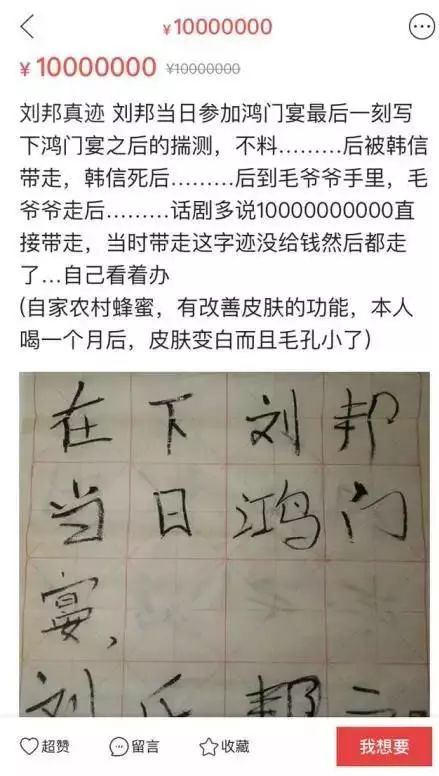 ¥10000000
¥ 10000000 ¥10000000
刘邦真迹 刘邦当日参加鸿门宴最后一刻写
下鸿门宴之后的揣测，不料………后被韩信
带走，韩信死后………后到毛爷爷手里，毛
爷爷走后………话剧多说10000000000直
接带走，当时带走这字迹没给钱然后都走
了…自己看着办
(自家农村蜂蜜，有改善皮肤的功能，本人
喝一个月后，皮肤变白而且毛孔小了)
在下刘邦
当日鸿门
宴，
刘氏邦
超赞 留言 收藏 我想要